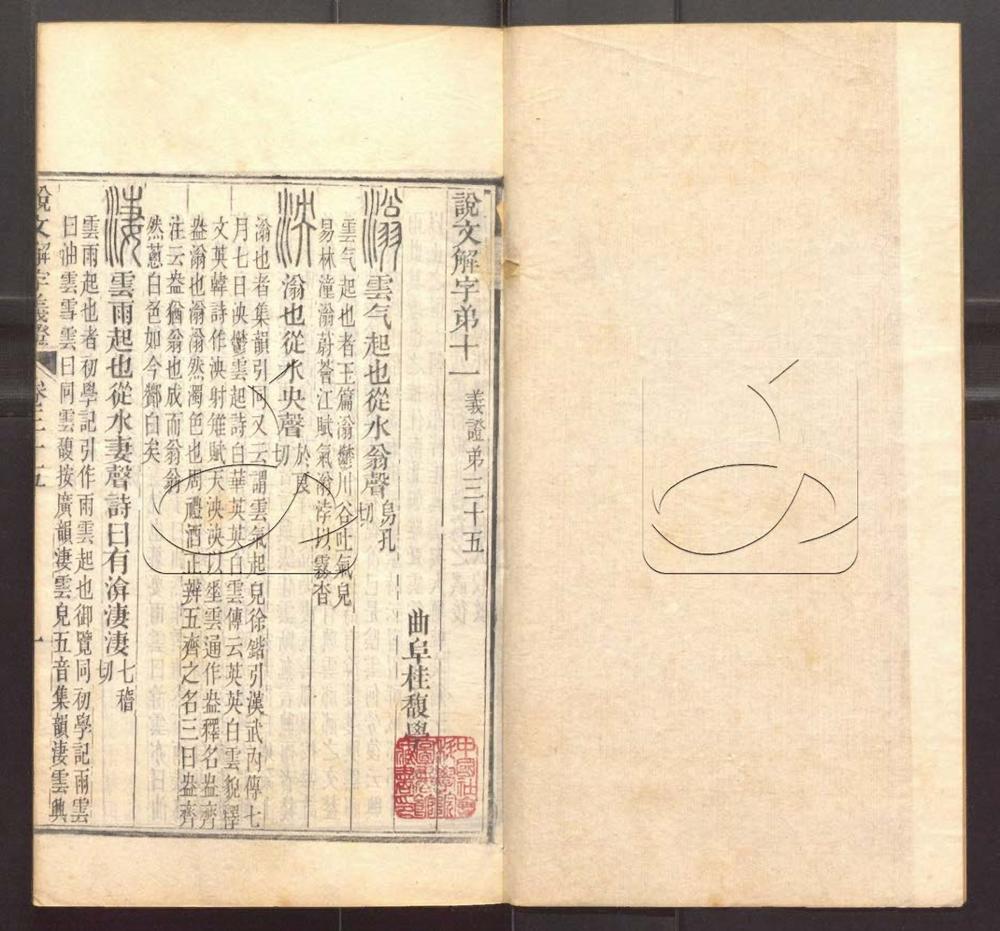 說文解字弟十一 義證弟三十五
曲阜桂馥學
滃 雲气起也從水翁聲 烏孔切
雲气起也者玉篇滃鬱川谷吐氣皃
易林潼滃蔚薈江賦氣滃浡以霧杳
泱 滃也從水央聲 於良切
滃也者集韻引同又云謂雲氣起皃徐鍇引漢武內傳七
月七日泱鬱雲起詩白華英英白雲傳云英英白雲貌釋
文英韓詩作泱射雉賦天泱泱以垂雲通作盎釋名盎齊
盎滃也滃滃然濁色也周禮酒正辨五齊之名三曰盎齊
注云盎猶翁也成而翁翁
然蔥白色如今酇白矣
淒 雲雨起也從水妻聲詩曰有渰淒淒 七稽切
雲雨起也者初學記引作雨雲起也御覽同初學記雨雲
曰油雲雪雲曰同雲馥按廣韻淒雲皃五音集韻淒雲興
說文解字義證 卷三十五 一
中國社會科學院圖書館藏書印